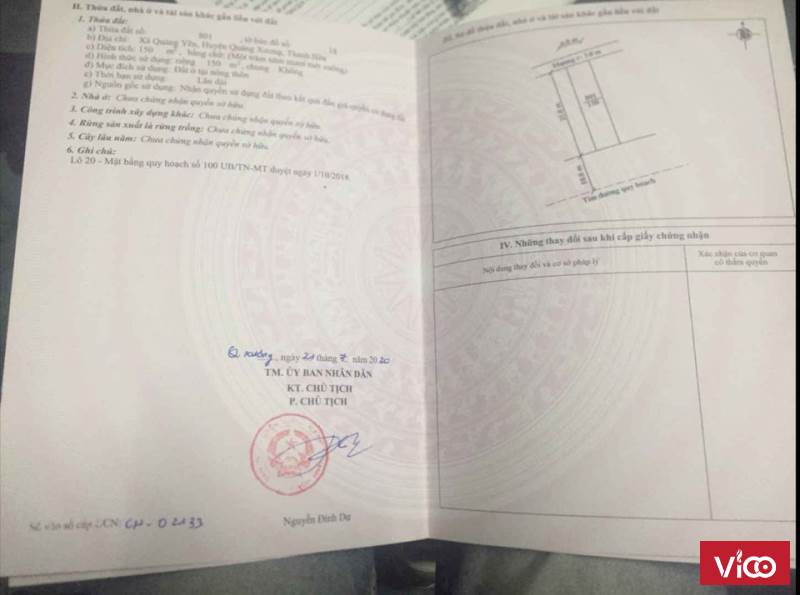 II. Thửa đất, nhà ở và tài sản khác gắn liền với đất
1. Thửa đất:
a) Thửa đất số: 801 , tờ bản đồ số: 18
b) Địa chỉ: Xã Quảng Yên, Huyện Quảng Xương, Thanh Hóa
c) Diện tích: 150 m², bằng chữ: (Một trăm năm mươi mét vuông)
d) Hình thức sử dụng: riêng 150 m², chung Không
đ) Mục đích sử dụng: Đất ở tại nông thôn
e) Thời hạn sử dụng: Lâu dài
g) Nguồn gốc sử dụng: Nhận quyền sử dụng đất theo kết quả đấu giá quyền sử dụng đất
2. Nhà ở: Chưa chứng nhận quyền sở hữu.
3. Công trình xây dựng khác: Chưa chứng nhận quyền sở hữu.
4. Rừng sản xuất là rừng trồng: Chưa chứng nhận quyền sở hữu.
5. Cây lâu năm: Chưa chứng nhận quyền sở hữu.
6. Ghi chú:
Lô 20 - Mặt bằng quy hoạch số 100 UB/TN-MT duyệt ngày 1/10/2018
Q Xương, ngày 21 tháng 7 năm 2020
TM. ỦY BAN NHÂN DÂN
KT. CHỦ TỊCH
P. CHỦ TỊCH
Nguyễn Đình Dự
Số vào sổ cấp GCN: CH-02133
III. Sơ đồ thửa đất, nhà ở và tài sản khác gắn liền với đất
Tim đường quy hoạch
IV. Những thay đổi sau khi cấp giấy chứng nhận
Nội dung thay đổi và cơ sở pháp lý
Xác nhận của cơ quan
có thẩm quyền
ViCO